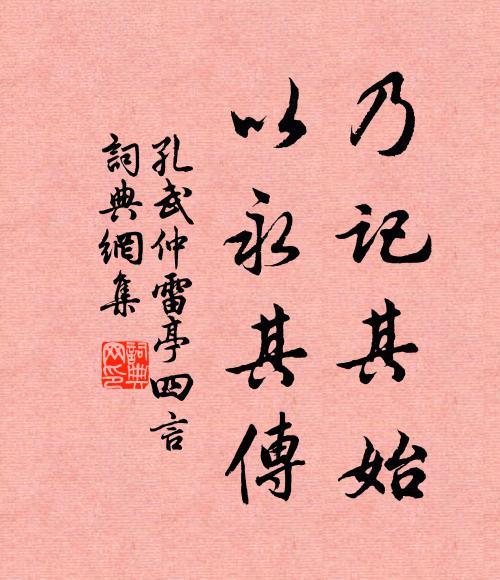 乃記其始
以永其傳
孔武仲雷亭四言
詞典網集
詞典
网印